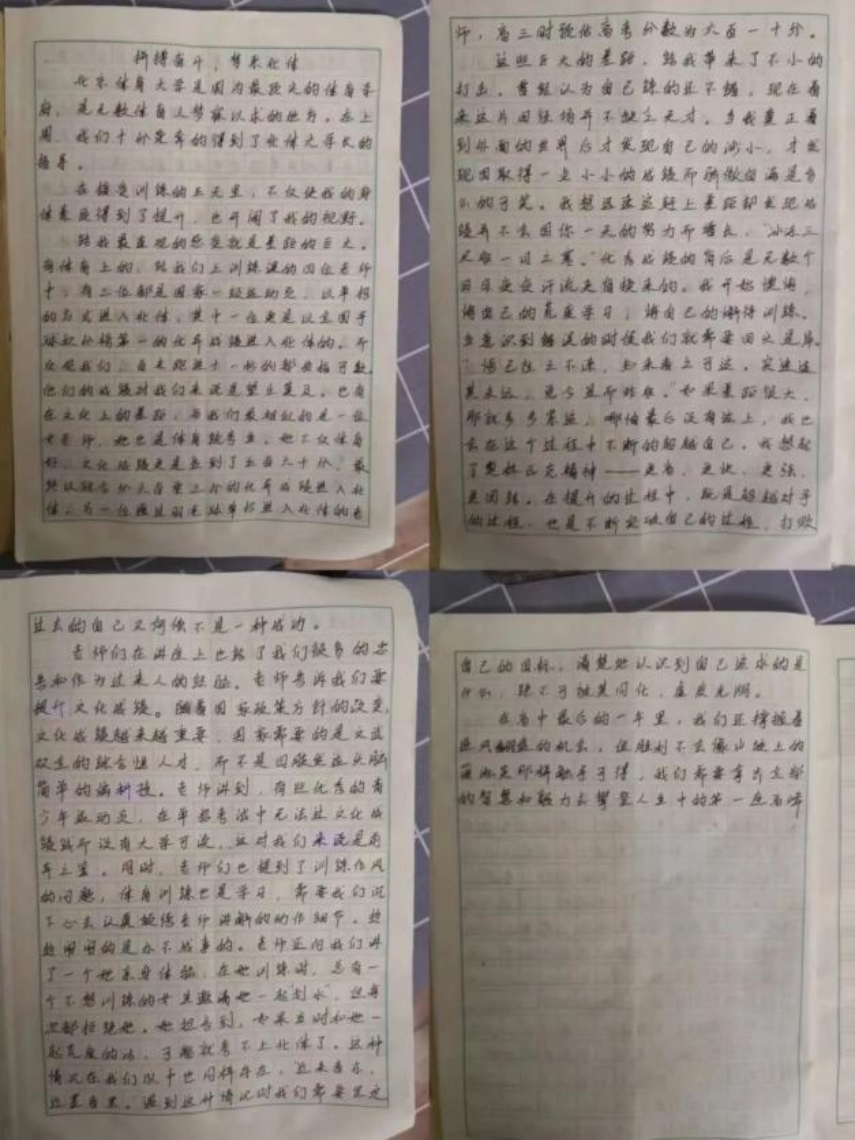 拼搏奋斗，梦系北体
北京体育大学是因为最顶尖的体育学
府，是无数体育人梦寐以求的地方。在上
周，我们十分荣幸的得到了北体大学长的
指导。
在接受训练的三天里，不仅使我的身
体素质得到了提升，也开阔了我的视野。
给我最直观的感觉就是差距的巨大。
有体育上的，给我们上训练课的四位老师
中，有三位都是国家一级运动员，以单招
的方式进入北体，其中一位更是以全国手
球积分榜第一的优异成绩进入北体的。而
反观我们，百米跑进十一秒的都屈指可数
他们的成绩对我们来说是望尘莫及。也有
在文化上的差距，与我们最相似的是一位
女老师，她也是体育统考生，她不仅体育
好，文化成绩更是考到了五百六十分，最
终以综合分六百零三分的优异成绩进入北
体。另一位通过羽毛球单招进入北体的老
师，高三时预估高考分数为六百一十分。
这些巨大的差距，给我带来了不小的
打击。曾经认为自己练的还不错，现在看
来这片田径场并不缺乏天才。当我真正看
到外面的世界后才发现自己的渺小，才发
现因取得一点小小的成绩而骄傲自满是多
么的可笑。我想迅速追赶上差距却发现成
绩并不会因你一天的努力而增长，"冰冻三
尺非一日之寒。"优秀成绩的背后是无数个
日日夜夜汗流夹背换来的。我开始懊悔，
悔自己的荒废学习，悔自己的懈怠训练。
当意识到错误的时候我们就需要回头是岸。
"悟已往之不谏，知来者之可追。实迷途
其未远，觉今是而昨非。"如果差距很大，
那就多多累进，哪怕最后没有追上，我也
会在这个过程中不断的超越自己。我想起
了奥林匹克精神——更高、更快、更强、
更团结。在提升的过程中，既是超越对手
的过程，也是不断突破自己的过程，打败
过去的自己又何尝不是一种成功。
老师们在讲座上也给了我们很多的忠
告和作为过来人的经验。老师告诉我们要
提升文化成绩。随着国家政策方针的改变，
文化成绩越来越重要，国家需要的是文武
双全的综合性人才，而不是四肢发达头脑
简单的偏科技。老师讲到，有些优秀的青
少年运动员，在单招考试中无法过文化成
绩线而没有大学可读，这对我们来说是前
车之鉴。同时，老师们也提到了训练作风
的问题，体育训练也是学习，需要我们沉
下心去认真领悟老师讲解的动作细节。想
想闹闹的是办不成事的。老师还向我们讲
了一个她亲身体验，在她训练时，总有一
个不想训练的女生邀请她一起"划水"，但每
次都拒绝她。她想告到，如果当时和她一
起荒废的话，可能就考不上北体了。这种
情况在我们队中也同样存在，"近朱者赤，
近墨者黑。"遇到这种情况时我们需要坚定
自己的目标，清楚地认识到自己追求的是
什么，绝不可被其同化，虚度光阴。
在高中最后的一年里，我们还掌握着
逆风翻盘的机会，但胜利不会像山坡上的
蒲公英那样触手可得，我们需要拿出全部
的智慧和毅力去攀登人生中的第一座高峰